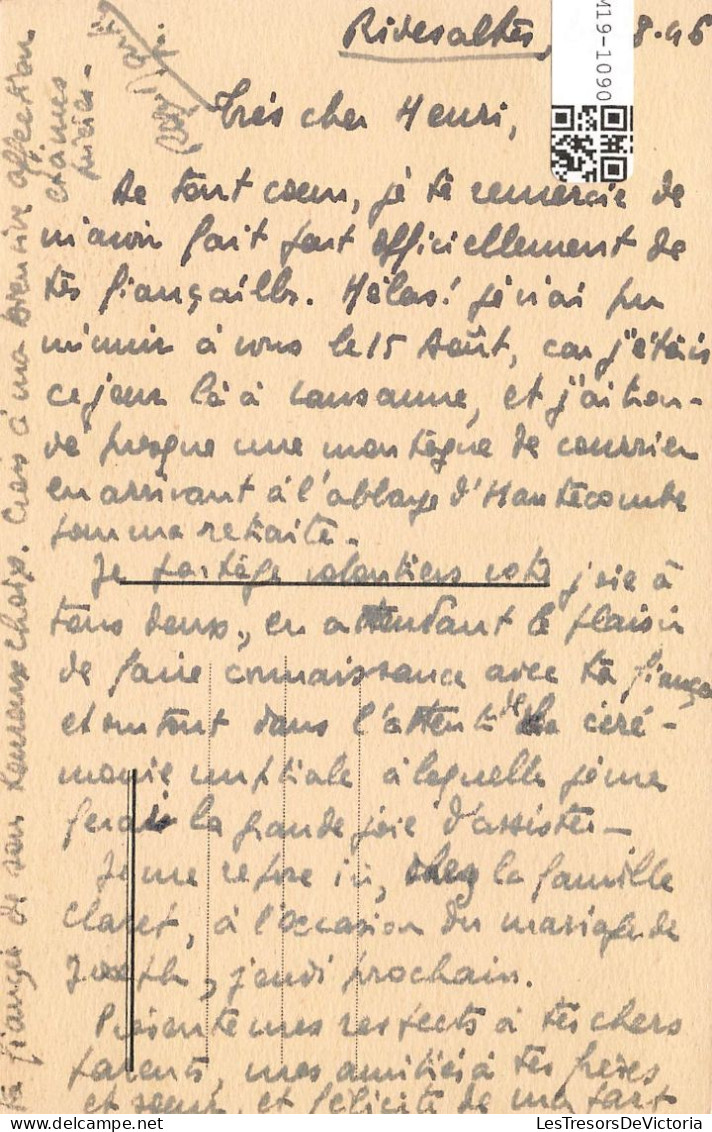 Rivesaltes, 8.46
M19-1090
Très cher Henri,
De tout coeur, je te remercie de
m'avoir fait part officiellement de
tes fiançailles. Hélas! je n'ai pu
m'unir à vous le 15 Août, car j'étais
ce jour là à Lausanne, et j'ai trou-
vé presque une montagne de courrier
en arrivant à l'abbaye d'Hautecombe
pour ma retraite.
Je partage volontiers votre joie à
tous deux, en attendant le plaisir
de faire connaissance avec ta fiancée
et surtout dans l'attente de la céré-
monie nuptiale à laquelle je me
ferai la grande joie d'assister.
Je me repose ici, chez la famille
Claret, à l'occasion du mariage de
Joseph, jeudi prochain.
Présente mes respects à tes chers
parents, mes amitiés à tes frères
et soeur, et félicite de ma part
ta fiancée de son heureux choix. Crois à ma bien vive affection
et à mes
LesTresorsDeVictoria.delcampe.net
LesTresorsDeVictoria